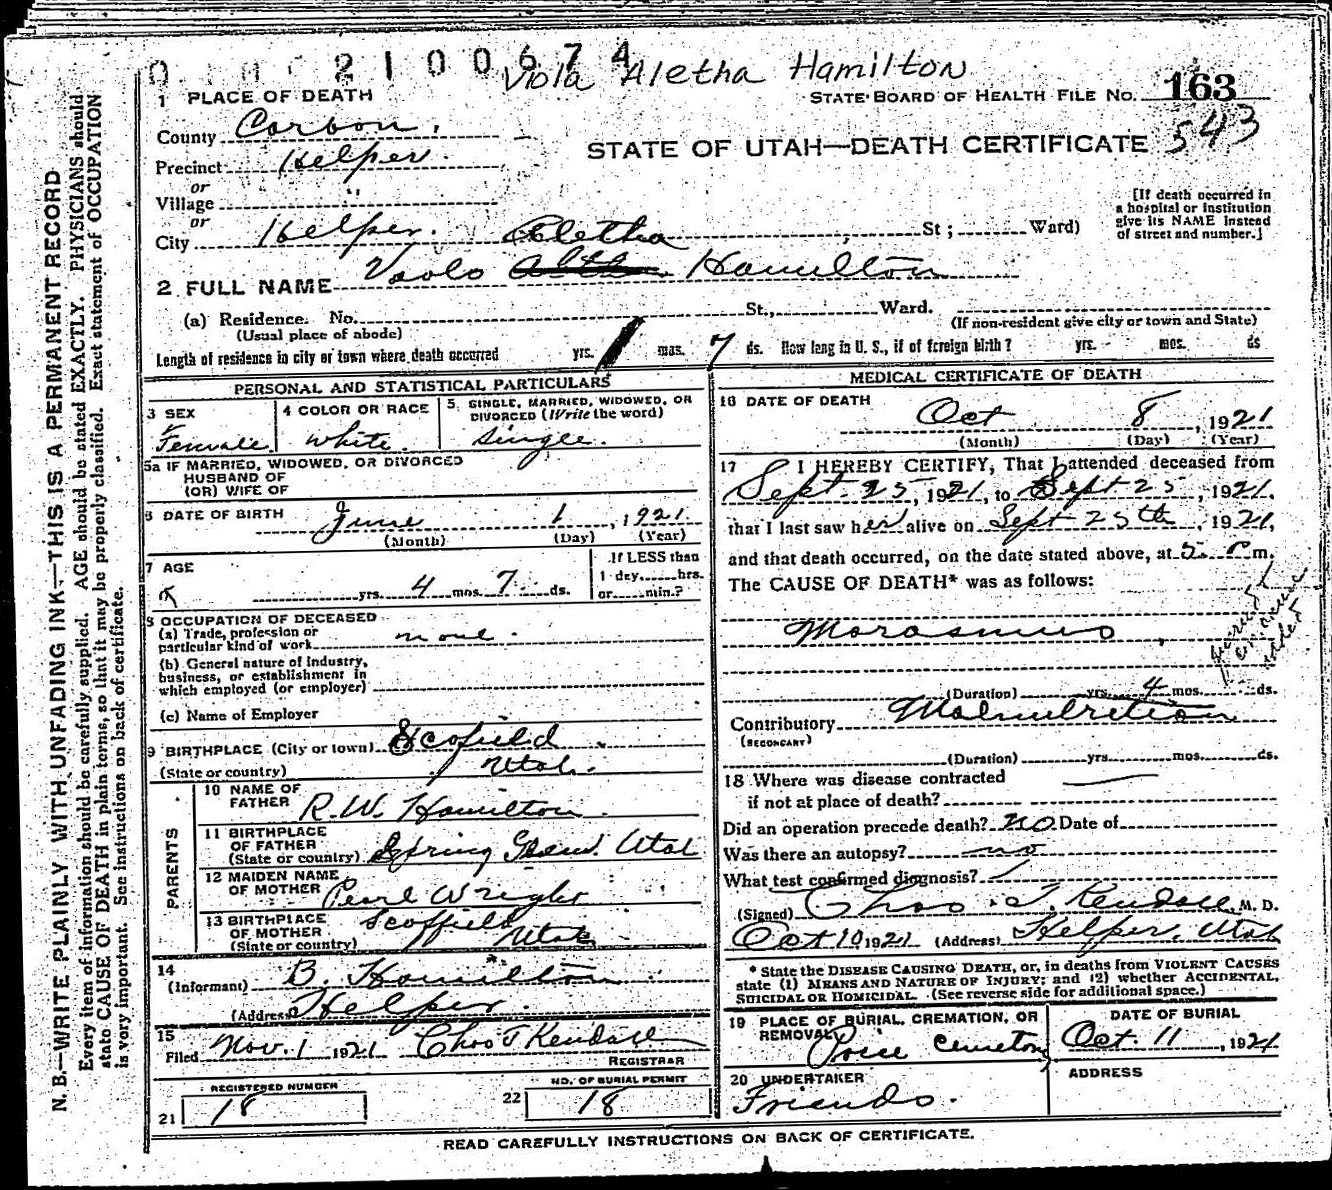 2100674
Viola Aletha Hamilton
STATE BOARD OF HEALTH FILE NO. 163
543
STATE OF UTAH—DEATH CERTIFICATE
1 PLACE OF DEATH
County Carbon.
Precinct Helper.
or
Village "
or
City Helper. St; Ward)
[If death occurred in
a hospital or institution
give its NAME instead
of street and number.]
Aletha
2 FULL NAME Hamilton
(a) Residence. No. St., Ward.
(Usual place of abode) (If non-resident give city or town and State)
Length of residence in city or town where death occurred yrs. 1 mos. 7 ds. How long in U. S., if of foreign birth? yrs. mos. ds
PERSONAL AND STATISTICAL PARTICULARS
3 SEX
Female
4 COLOR OR RACE
White.
5. SINGLE, MARRIED, WIDOWED, OR
DIVORCED (Write the word)
Single.
5a IF MARRIED, WIDOWED, OR DIVORCED
HUSBAND OF
(OR) WIFE OF
6 DATE OF BIRTH June 1, 1921
(Month) (Day) (Year)
7 AGE
yrs. 4 mos. 7 ds.
If LESS than
1 day hrs.
or min.?
8 OCCUPATION OF DECEASED
(a) Trade, profession or
particular kind of work none.
(b) General nature of industry,
business, or establishment in
which employed (or employer)
(c) Name of Employer
9 BIRTHPLACE (City or town) Scofield
(State or country) Utah.
PARENTS
10 NAME OF
FATHER R.W. Hamilton
11 BIRTHPLACE
OF FATHER
(State or country) Spring Glen. Utah
12 MAIDEN NAME
OF MOTHER Pearl Wright
13 BIRTHPLACE
OF MOTHER Scoffield
(State or country) Utah
14
(Informant) B. Hamilton
(Address Helper.
15
Filed Nov. 1 1921 Chas T Kendall
REGISTRAR
REGISTERED NUMBER
21 18
NO. OF BURIAL PERMIT
22 18
MEDICAL CERTIFICATE OF DEATH
16 DATE OF DEATH
Oct 8, 1921
(Month) (Day) (Year)
17 I HEREBY CERTIFY, That I attended deceased from
Sept. 25, 1921, to Sept 25, 1921.
that I last saw her alive on Sept 25th, 1921,
and that death occurred, on the date stated above, at 5 P m.
The CAUSE OF DEATH* was as follows:
Morasmus
(Duration) yrs. 4 mos. ds.
Contributory Malnutretion
(SECONDARY)
(Duration) yrs. mos. ds.
18 Where was disease contracted
if not at place of death?
Did an operation precede death? no Date of
Was there an autopsy? no
What test confirmed diagnosis?
(Signed) Chas. T. Kendall, M. D.
Oct 10 1921 (Address) Helper, Utah
* State the DISEASE CAUSING DEATH, or, in deaths from VIOLENT CAUSES
state (1) MEANS AND NATURE OF INJURY; and (2) whether ACCIDENTAL,
SUICIDAL OR HOMICIDAL. (See reverse side for additional space.)
19 PLACE OF BURIAL, CREMATION, OR
REMOVAL Price Cemetery
DATE OF BURIAL
Oct. 11, 1921
20 UNDERTAKER
Friends.
ADDRESS
READ CAREFULLY INSTRUCTIONS ON BACK OF CERTIFICATE.
N. B.—WRITE PLAINLY WITH UNFADING INK—THIS IS A PERMANENT RECORD
Every item of information should be carefully supplied. AGE should be stated EXACTLY. PHYSICIANS should
state CAUSE OF DEATH in plain terms, so that it may be properly classified. Exact statement of OCCUPATION
is very important. See instructions on back of certificate.